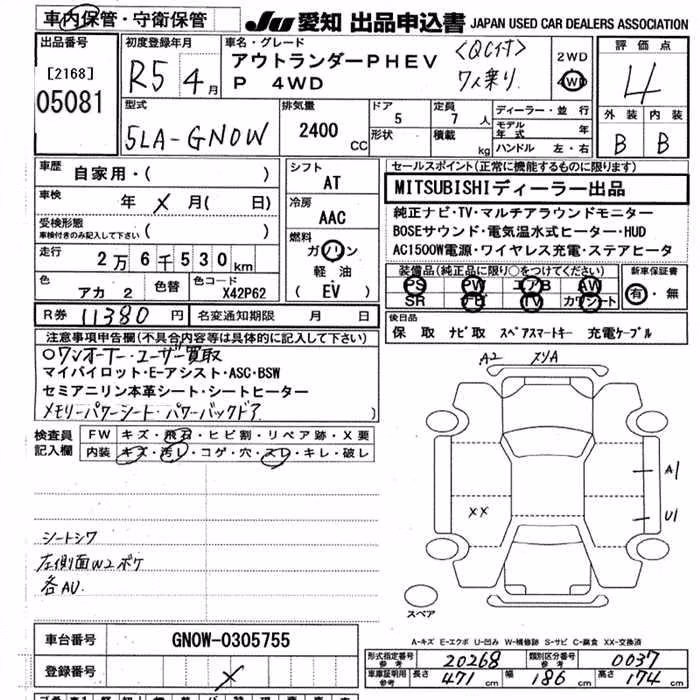 車内保管・守衛保管
JU 愛知 出品申込書 JAPAN USED CAR DEALERS ASSOCIATION
出品番号
[2168]
05081
初度登録年月
R5 4月
車名・グレード
アウトランダーPHEV
P 4WD
〈QC付〉
7人乗り.
2WD
4WD
評価点
4
外装 内装
B B
型式
5LA-GN0W
排気量
2400 CC
ドア
5
形状
定員
7 人
積載
kg
ディーラー・並行
モデル年式 年
ハンドル 左・右
車歴
自家用・( )
車検
年 × 月( 日)
受検形態
車検付きのみ記入して下さい ( )
走行
2万6千530km
色
アカ 2
色替
色コード
X42P62
シフト
AT
冷房
AAC
燃料
ガソリン
軽油
( EV )
セールスポイント(正常に機能するものに限ります)
MITSUBISHIディーラー出品
純正ナビ・TV・マルチアラウンドモニター
BOSEサウンド・電気温水式ヒーター・HUD
AC1500W電源・ワイヤレス充電・ステアヒータ
装備品(純正品に限り○をつけてください)
PS PW エアB AW
SR ナビ TV カワシート
新車保証書
有・無
R券 11380 円 名変通知期限 月 日
後日品
保 取 ナビ取 スペアスマートキー 充電ケーブル
注意事項申告欄(不具合内容等は具体的に記入して下さい)
○ワンオーナー・ユーザー買取
マイパイロット・E-アシスト・ASC・BSW
セミアニリン本革シート・シートヒーター
メモリーパワーシート・パワーバックドア )
検査員記入欄
FW キズ・飛石・ヒビ割・リペア跡・X要
内装 キズ・汚レ・コゲ・穴・スレ・キレ・破レ
シートシワ
左側面W2ボケ
各AU.
A2
XリA
A1
XX
U1
スペア
A-キズ E-エクボ U-凹み W-補修跡 S-サビ C-腐食 XX-交換済
車台番号 GN0W-0305755
登録番号 ×
形式指定番号 参考 20268 類別区分番号 参考 0037
車庫証明用 参考 長さ 471 cm 幅 186 cm 高さ 174 cm